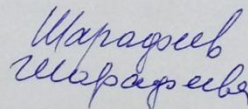 Шарафеев
Шарафеева